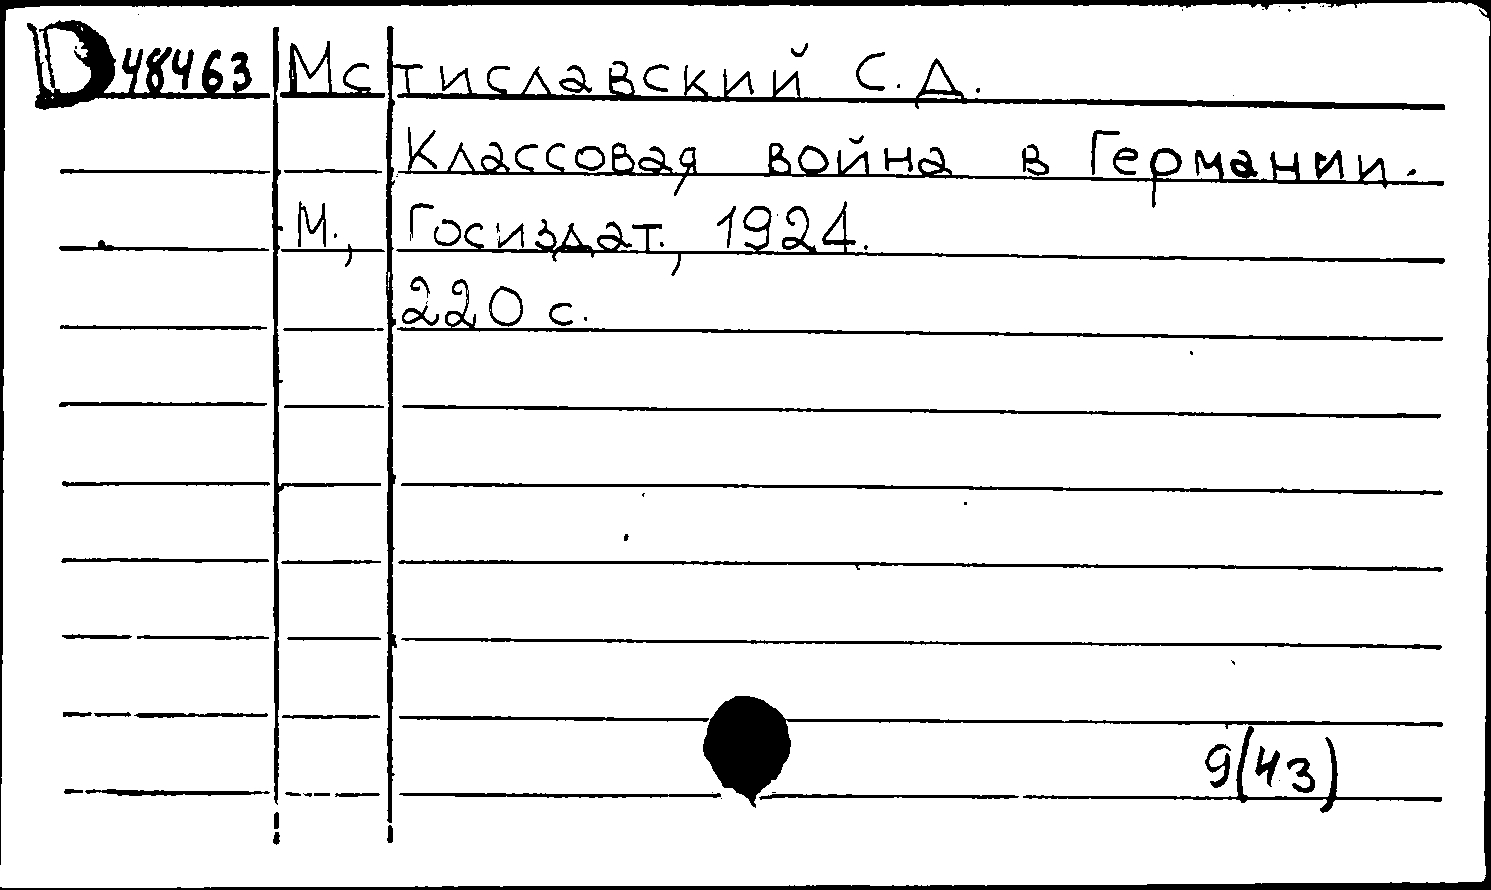 D 48463 Мстиславский С.Д.
Классовая война в Германии.
М., Госиздат., 1924.
220 с.
9(43)